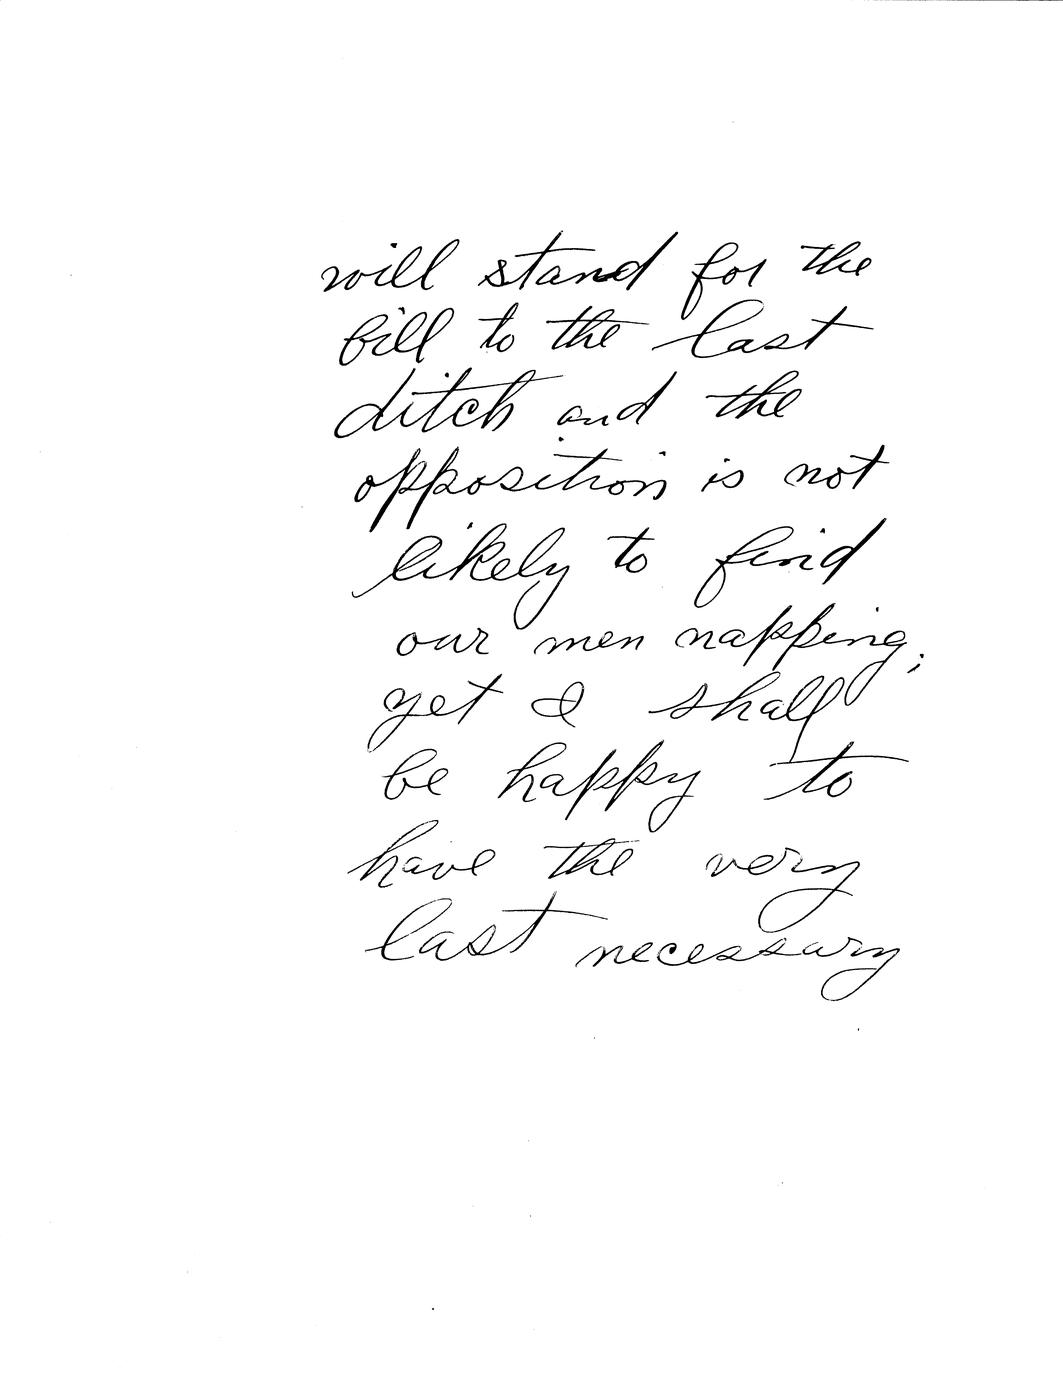 will stand for the
bill to the last
ditch and the
opposition is not
likely to find
our men napping;
yet I shall
be happy to
have the very
last necessary